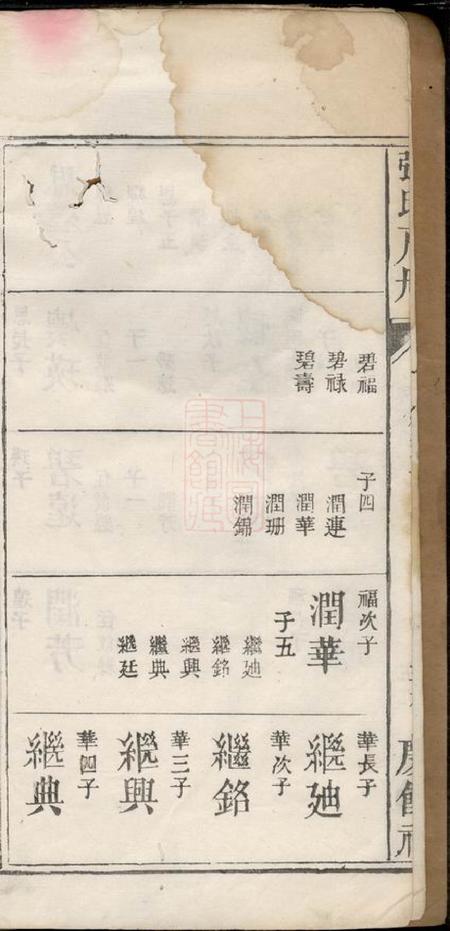 碧福
碧祿
碧壽
子四
潤連
潤華
潤珊
潤錦
福次子
潤華
子五
繼廸
繼銘
繼興
繼典
繼廷
華長子
繼廸
華次子
繼銘
華三子
繼興
華四子
繼典
上海圖書館藏